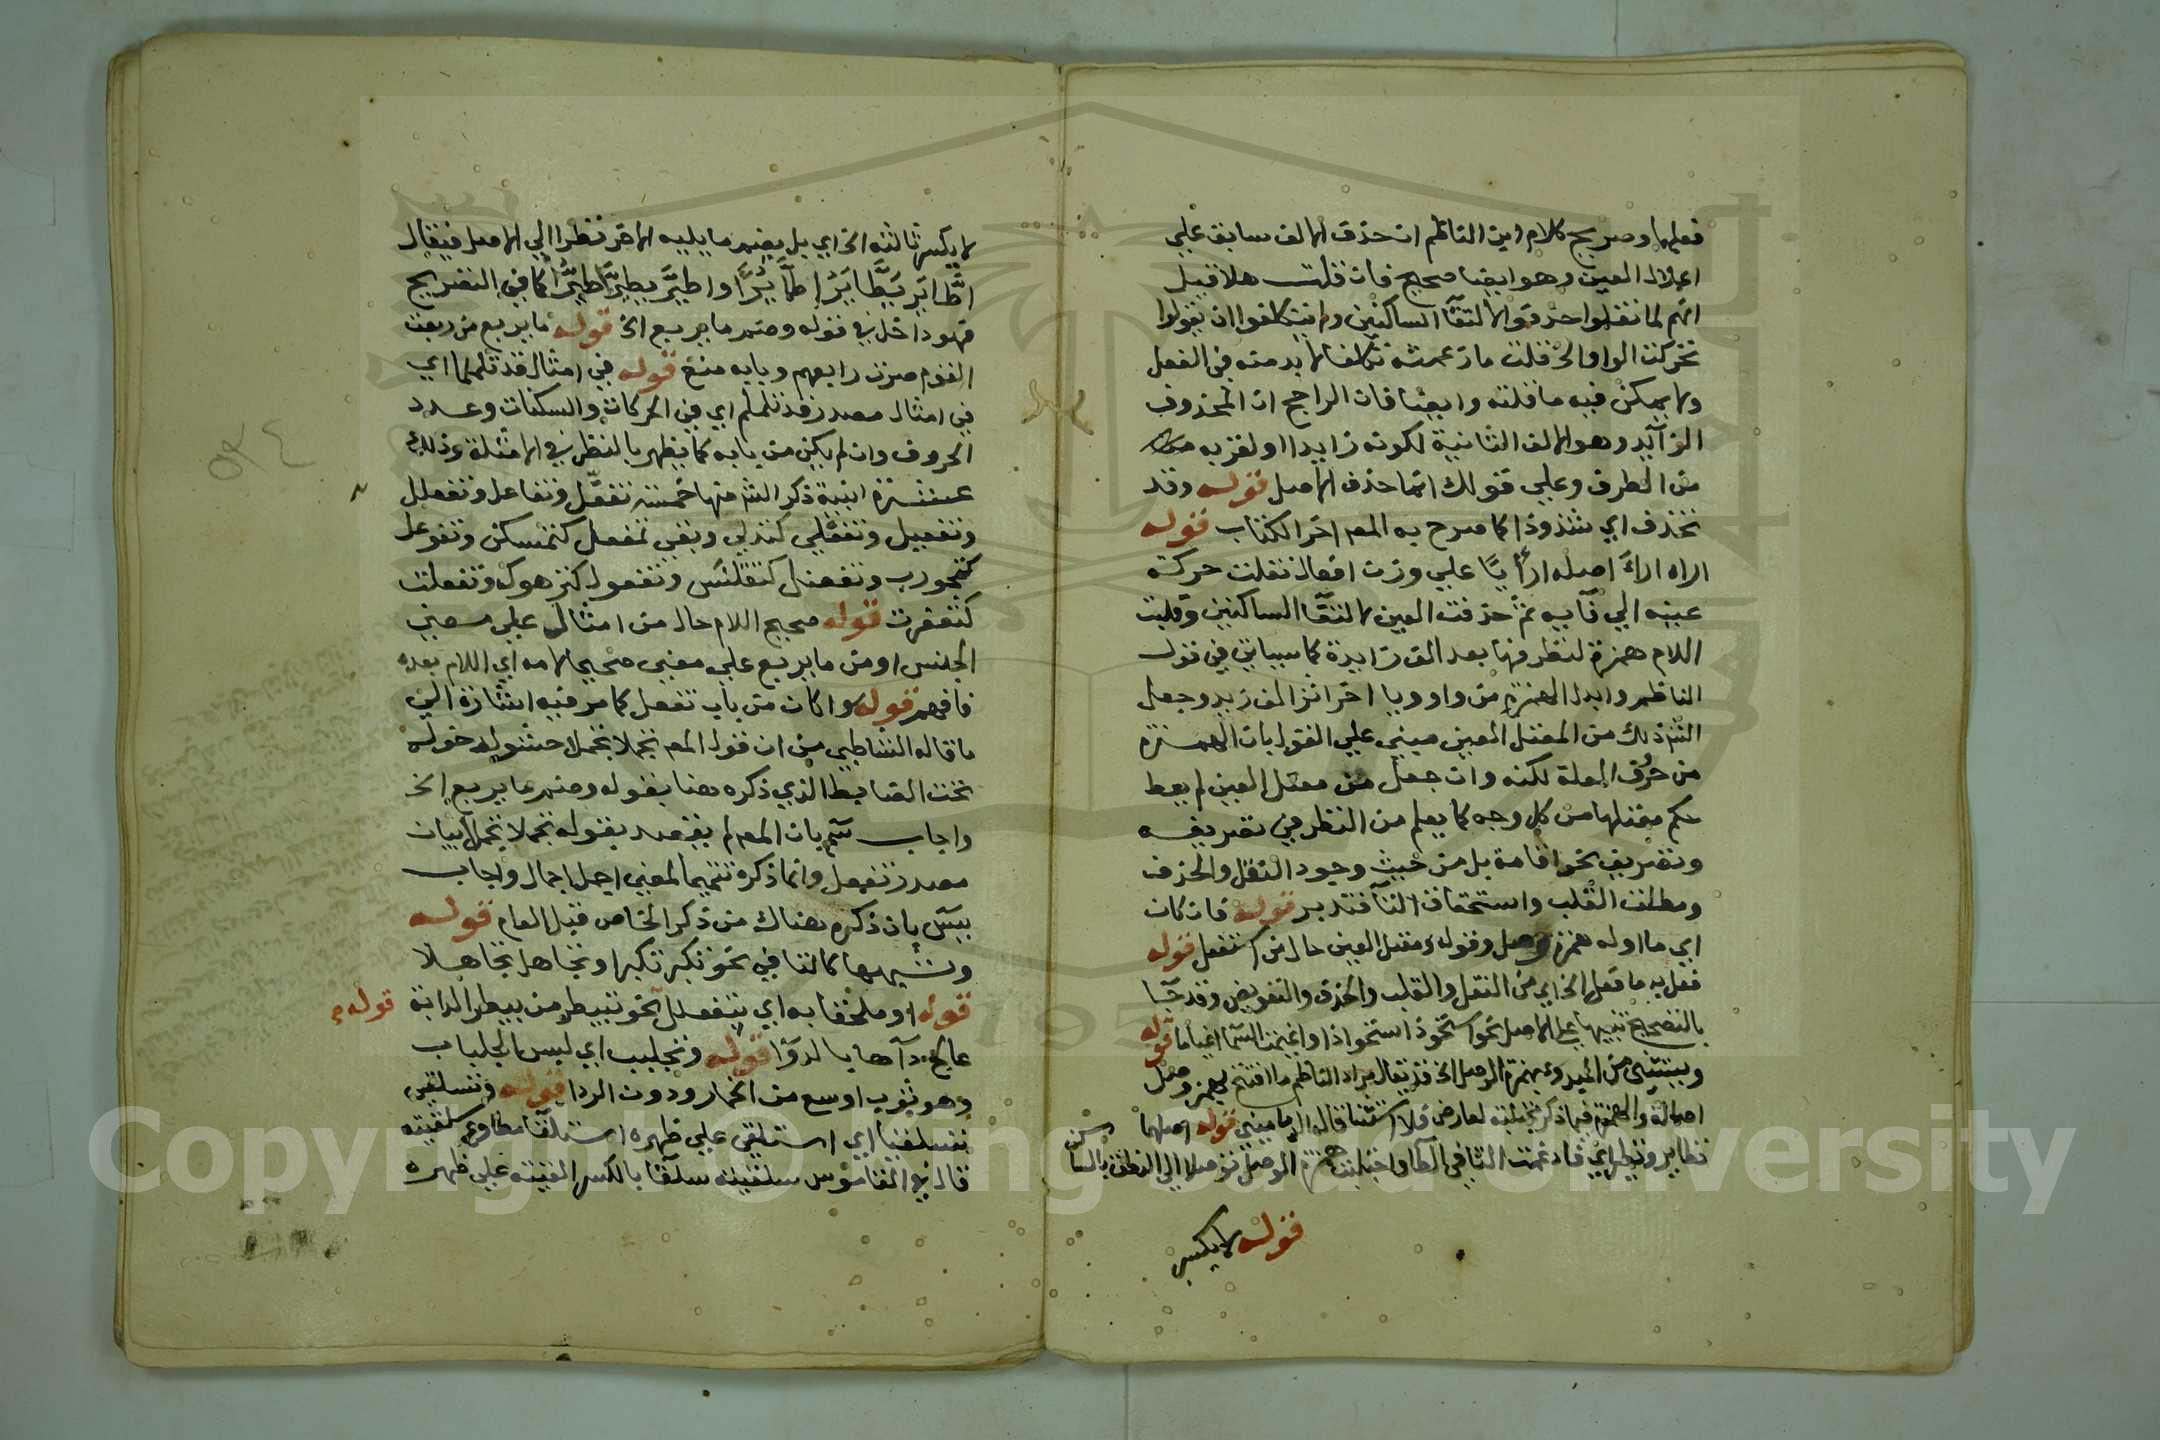 فعلهما وصريح كلام ابن الناظم ان حذف الالف سابق علي
اعلال العين وهو ايضا صحيح فان قلت هلا قيل
انهم لما نقلوا حذفوا لالتقاء الساكنين ولم يتكلفوا ان يقولوا
تحركت الواو الخ قلت ما زعمته تكلفا لا بد منه في الفعل
ولا يمكن فيه ما قلته وايضا فان الراجح ان المحذوف
الزايد وهو الالف الثانية لكونه زايدا ولقربه
من الطرف وعلي قولك انما حذف الاصل قوله وقد
تحذف اي شذوذا كما صرح به المص اخر الكتاب قوله
اراه اراء اصله ارأيا علي وزن افعال نقلت حركة
عينه الي فآيه ثم حذفت العين لالتقاء الساكنين وقلبت
اللام همزة لتطرفها بعد الف زايدة كما سياتي في قول
الناظم وابدل الهمزة من واو ويا اخرا اثر الف زيد وجعل
الش ذلك من المعتل العين مبني علي القول بان الهمزة
من حرف العلة لكنه وان جعل من معتل العين لم يعط
حكم معتلها من كل وجه كما يعلم من النظر في تصريفه
وتصريف نحو اقامة بل من حيث وجود النقل والحذف
ومطلق القلب واستحقاق التآ فتدبر قوله فان كان
اي ما اوله همزة وصل وقوله معتل العين حال من استفعل قوله
فعل به ما فعل الخ اي من النقل والقلب والحذف والتعويض وقد جا
بالتصحيح تنبيها علي الاصل نحو استحوذ استحواذا واغيمت السما اغياما قوله
ويستثنى من المبدوء بهمزة الوصل الخ قد يقال مراد الناظم ما افتتح بهمز وصل
اصالة والهمزة فيما ذكر مجتلبة لعارض فلا استثنا قاله الدماميني قوله اصلهما
تطاير وتطير اي فادغمت التا في الطا واجتلبت همزة الوصل توصلا الي النطق بالساكن
قوله لا يكسر
لا يكسر ثالثه الخ اي بل يضم ما يليه الاخر نظرا الي الاصل فيقال
اطاير يطاير اطايرا واطير يطير اطيرا كما في التصريح
فهو داخل في قوله وضم ما يربع الخ قوله ما يربع من ربعت
القوم صرت رابعهم وبابه منع قوله في امثال قد تلملما اي
في امثال مصدر قد تلملم اي في الحركات والسكنات وعدد
الحروف وان لم يكن من بابه كما يظهر بالنظر في الامثلة وذلك
عشرة ابنية ذكر الش منها خمسة تفعل وتفاعل وتفعلل
وتفعيل وتفعلي كتدلي وبقي تمفعل كتمسكن وتفوعل
كتجورب وتفعنل كتقلنس وتفعول كترهوك وتفعلت
كتعفرت قوله صحيح اللام حال من امثال علي معني
الجنس او من ما يربع علي معني صحيحا لامه اي اللام بعده
فافهم قوله سوا كان من باب تفعل كما مر فيه اشارة الي
ما قاله الشاطبي من ان قول المص تجملا تجملا حشو لدخوله
تحت الضابط الذي ذكره هنا بقوله وضم ما يربع الخ
واجاب سم بان المص لم يقصد بقوله تجملا تجملا بيان
مصدر تفعل وانما ذكره تتميما لمعني اجمل اجمال واجاب
يس بان ذكره هناك من ذكر الخاص قبل العام قوله
وشبهها كالتا في نحو تكبر تكبرا وتجاهل تجاهلا
قوله او ملحقا به اي بتفعلل نحو تبيطر من بيطر الدابة
عالج دآها بالدوآ قوله وتجلبب اي لبس الجلباب
وهو ثوب اوسع من الخمار ودون الردا قوله وتسلقي
تسلقيا اي استلقي علي ظهره استلقآ مطاوع سلقيته
قال في القاموس سلقيته سلقآ بالكسر القيته علي ظهره
قوله
Copyright © King Saud University